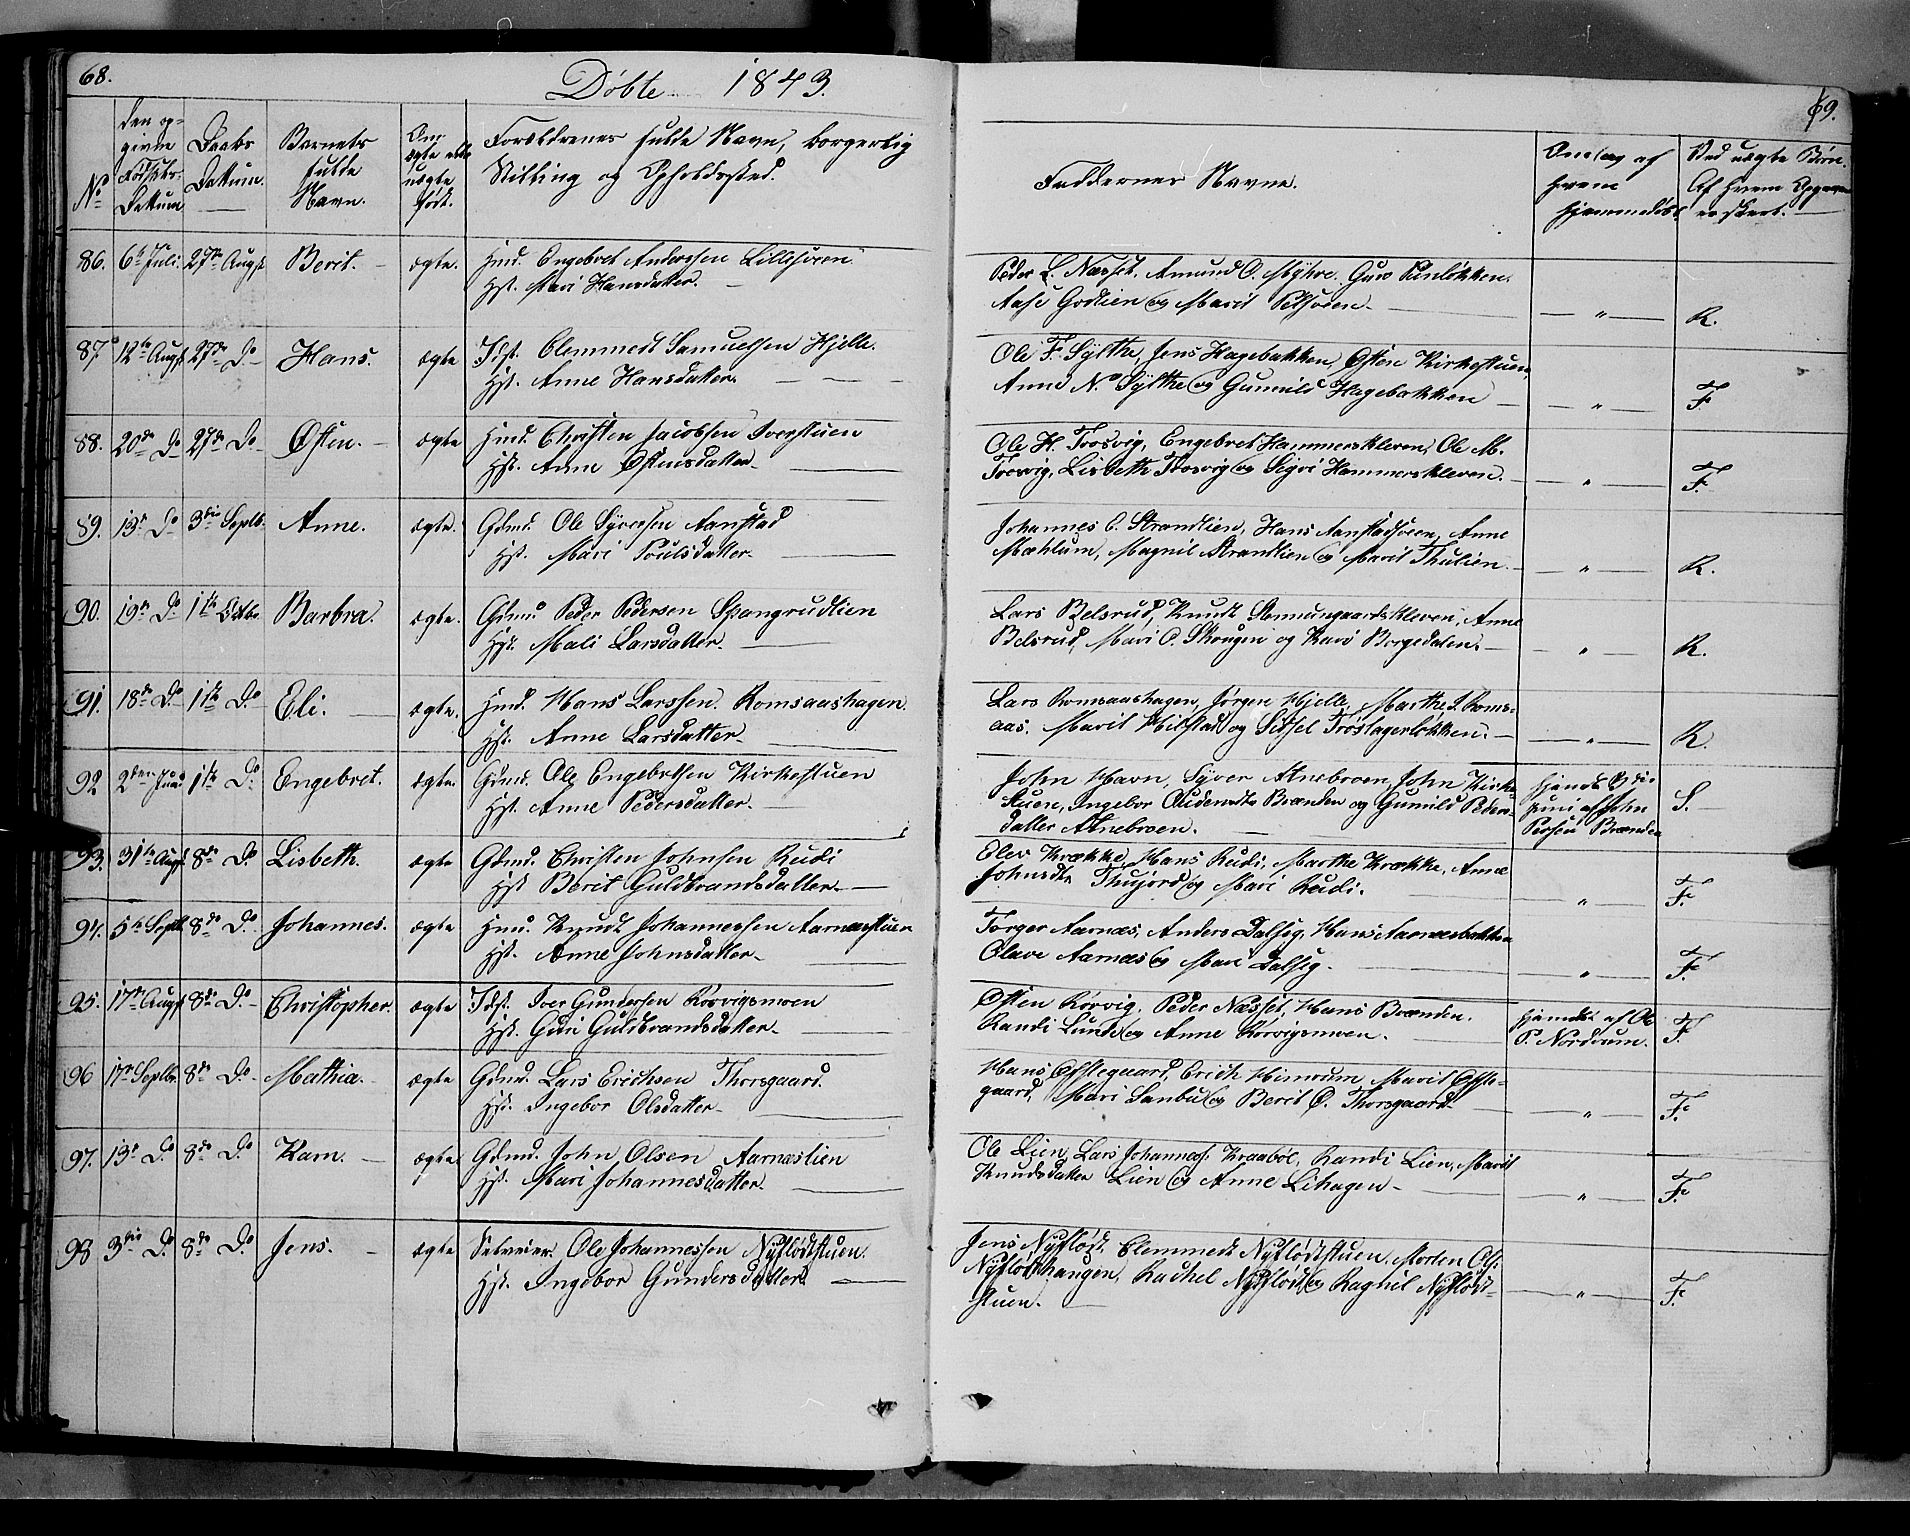 68.
Døbte 1843.
69.
No
den op-
givne
Fødsels-
Datum
Daabs
Datum.
Barnets
fulde
Navn.
Om
ægte eller
uægte
født.
Forældrenes fulde Navn, borgerlig
Stilling og Opholdssted.
Faddernes Navne.
Anelag af
hvem
hjemmedøbt.
Ved uægte Børn.
Af hvem Opgaven
er skeet.
86. 6te Juli. 27de Augst Berit. ægte. Hmd. Engebret Anderssen Lillesveen
Hst. Mari Hansdatter.
Peder L. Næsset, Amund O. Myhre, Guro
Aase Godlien og Marit R.
87. 12te Augst 27de Do Hans. ægte Idst. Clemmedt Samuelsen Hjelle.
Hst. Anne Hansdatter.
Ole F. Sylthe, Jens Hagebakken, Østen Kirkestuen,
Anne N. Sylthe og Gunnild Hagebakken " F.
88. 20de Do 27de Do Østen. ægte Hmd. Christen Jacobsen Iverstuen
Hst. Anne Østensdatter
Ole H. Trosvig, Engebret Hammerskleven, Ole M.
Trosvig, Lisbeth Trosvig og Sigri Hammerskleven. " F.
89. 13de Do 3die Septb. Anne. ægte. Gdmd. Ole Syversen Aanstad
Hst. Mari Poulsdatter.
Johannes C. Strandlien, Hans Aanstadsveen, Anne
Mæhlum, Magnil Strandlien og Marit Thulien. " R.
90. 19de Do 1ste Octbr. Barbra. ægte. Gdmd. Peder Pedersen Spangrudlien
Hst. Mali Larsdatter.
Lars Belsrud, Knudt Kleven, Anne
Belsrud, Mari O. Skougen og Kari Borgedalen. " R.
91. 18de Do 1ste Do Eli. ægte. Hmd. Hans Larssen Romsaashagen
Hst. Anne Larsdatter.
Lars Romsaashagen, Jørgen Hjelle, Marthe S. Roms-
aas, Marit Hilstad og Sidsel " R.
92 2den Juni 1ste Do Engebret. ægte. Gdmd. Ole Engebretsen Kirkestuen
Hst. Anne Pedersdatter.
John Havn, Syver Atnebroen, John Kirke-
stuen, Ingebor Brænden og Gunnild Peders-
datter Atnebroen.
hjemdt 3die
Juni af John
Persen Brænden S.
93. 31te Augst 8de Do Lisbeth. ægte Gdmd. Christen Johnsen Rudi
Hst Berit Guldbrandsdatter.
Elev Krække, Hans Rudi, Marthe Krække, Anne
Johnsdtr Thujord og Mari Rudi. " F.
94. 5te Septb. 8de Do. Johannes. ægte Hmd. Knudt Johannessen Aarnæsstuen
Hst. Anne Johnsdatter.
Torger Aarnæs, Anders Dalseg, Hans Aarnæsbakken
Olave Aarnæs og Mari Dalseg. " F.
95. 17de Augst 8de Do. Christopher. ægte Idst. Iver Gundersen Rørvigsmoen
Hst. Guri Guldbrandsdatter.
Østen Rørvig, Peder Næsset, Hans Brænden.
Randi Lunde og Anne Rørvigsmoen.
hjemdt af Ole
P. Nordrum. F.
96 17de Septbr. 8de Do. Mathia. ægte Gdmd. Lars Erichsen Thorsgaard.
Hst. Ingebor Olsdatter
Hans Offlegaard, Erich Himrum, Marit Offle-
gaard, Mari Sanbu og Berit O. Thorsgaard " F.
97. 13de Do. 8de Do. Karn. ægte. Gdmd. John Olsen Aarnæslien
Hst. Mari Johannesdatter.
Ole Lien, Lars Johannes. Kraabøl, Randi Lien, Marit
Knudsdatter Lien og Anne Lihagen. " F.
98 3die Do. 8de Do. Jens. ægte Selveier. Ole Johannessen Nyflødtstuen.
Hst. Ingebor Gundersdatter.
Jens Nyflødt, Clemmedt Nyflødtstuen, Morten Ols.
Nyflødthaugen, Rachel Nyflødt og Ragnil Nyflødt-
stuen. " F.